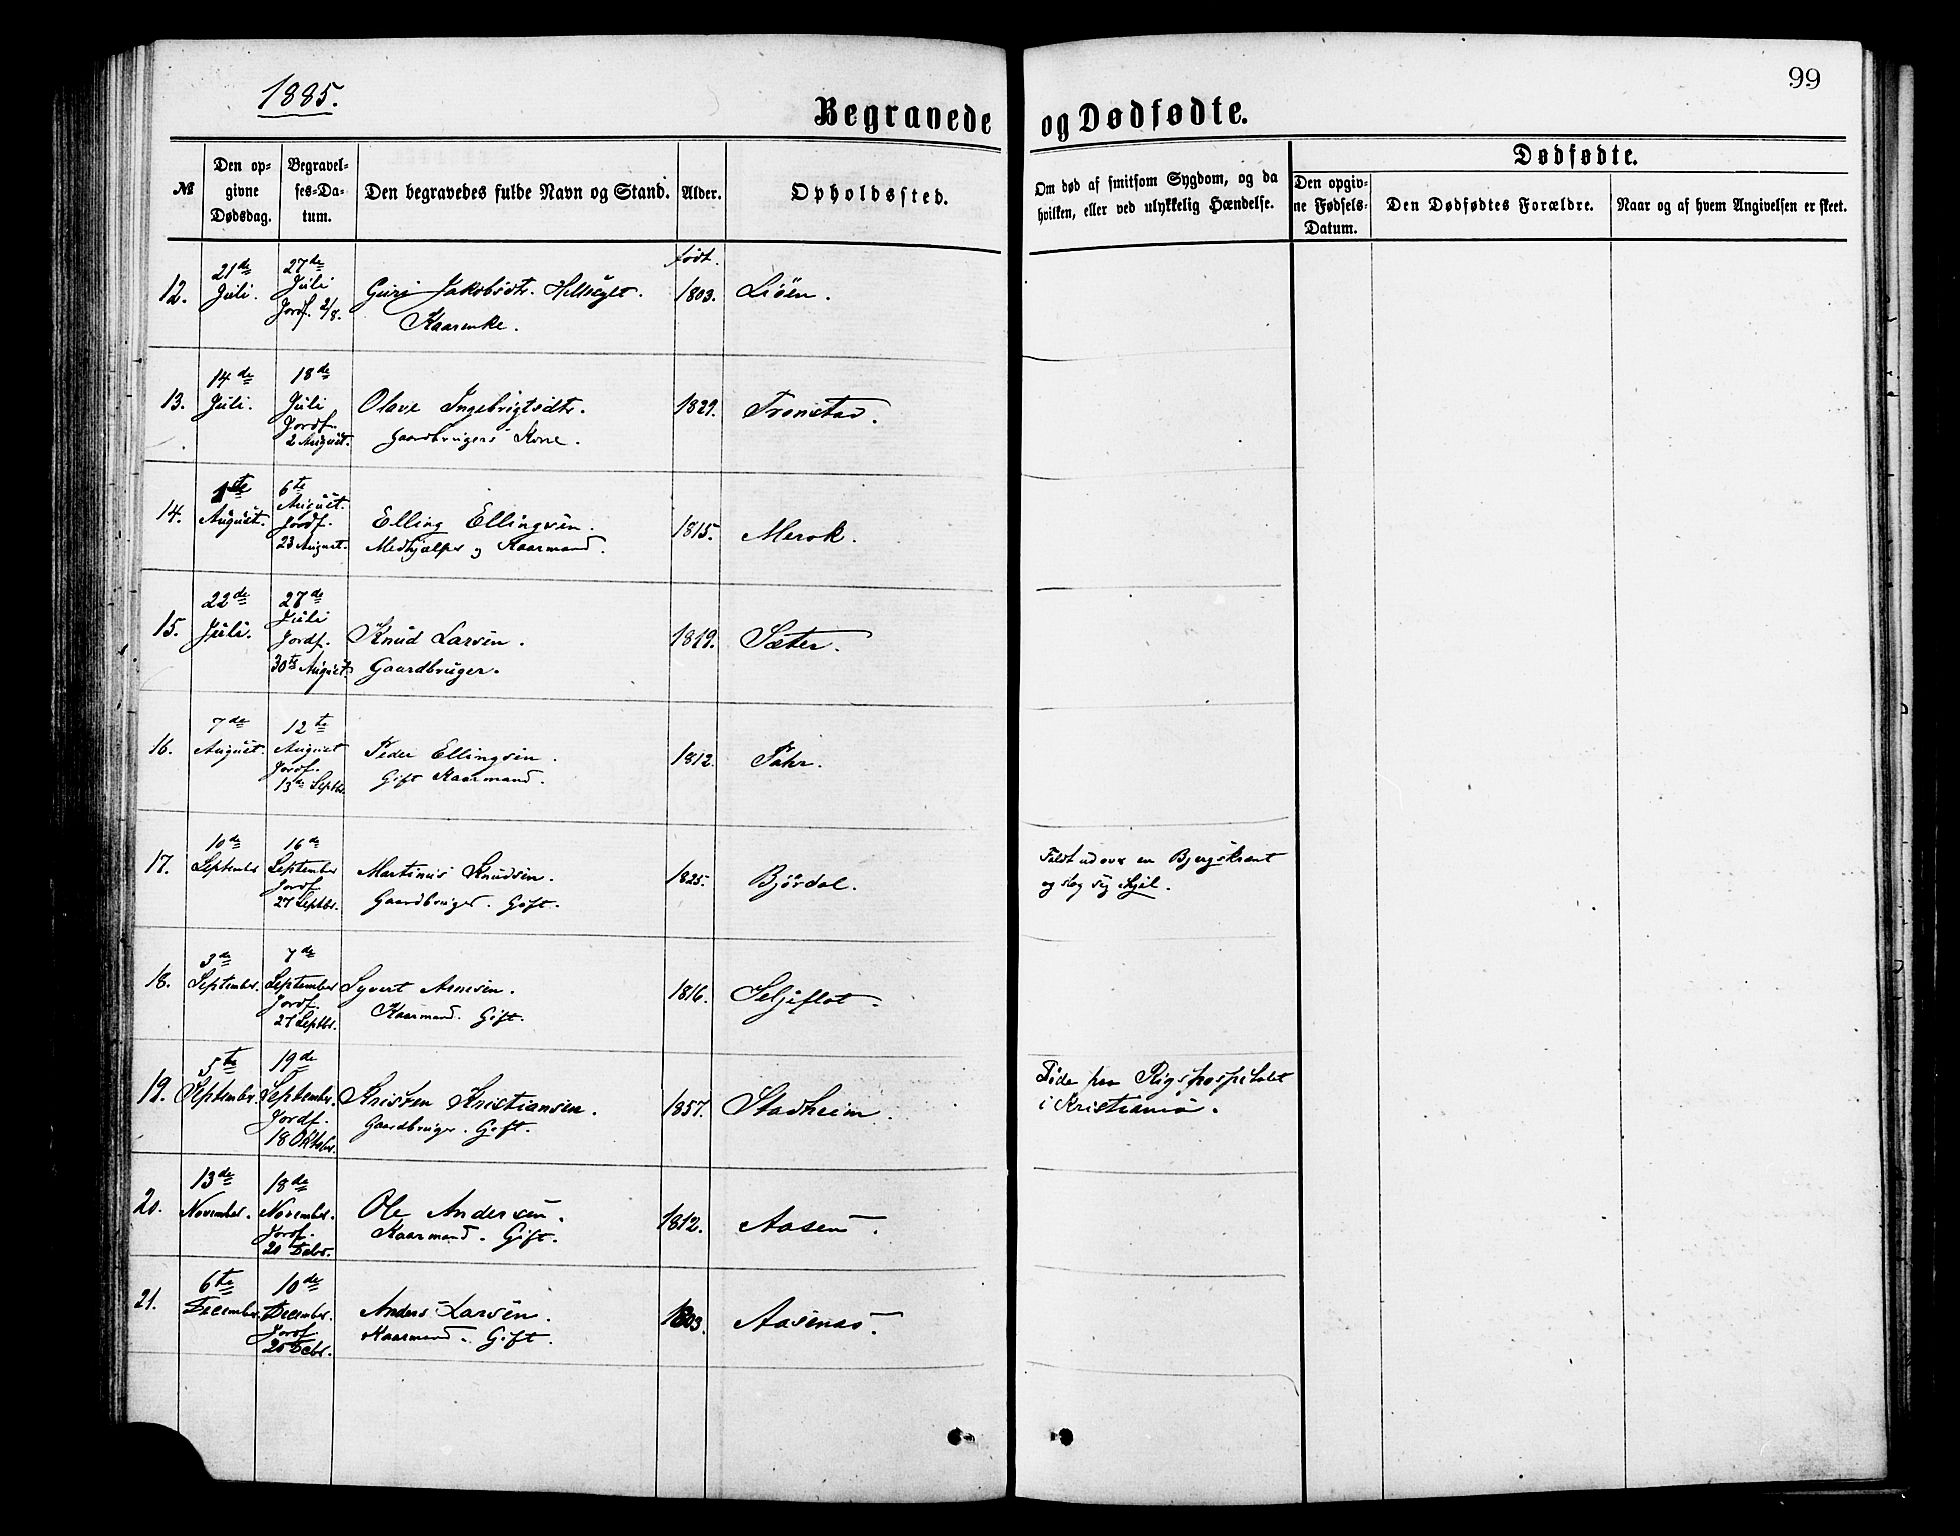 1885.
99
Begravede og Dødfødte.
№
Den opgivne Dødsdag.
Begravelses-Datum.
Den begravedes fulde Navn og Stand.
Alder.
Opholdssted.
Om død af smitsom Sygdom, og da hvilken, eller ved ulykkelig Hændelse.
Dødfødte.
Den opgivne Fødsels-Datum.
Den Dødfødtes Forældre.
Naar og af hvem Angivelsen er skeet.
født.
12. 21de Juli. 27de Juli Jordf. 2/8. Guri Jakobsdtr. Hellsylt. 1803. Liøen.
Kaarenke.
13. 14de Juli. 18de Juli Jordf. 2 August. Olave Ingebrigtsdtr. 1829. Tronstad.
Gaardbrugers Kone.
14. 1ste August. 6te August. Jordf. 23 August. Elling Ellingsen. 1815. Merok.
Medhjælper og Kaarmand.
15. 22de Juli. 27de Juli Jordf. 30te August. Knud Larsen. 1819. Sæter.
Gaardbruger.
16. 7de August. 12te August Jordf. 13de Septbr. Peder Ellingsen. 1812.
Gift Kaarmand.
17. 10de September 16de September Jordf. 27 Septbr. Martinus Knudsen. 1825. Bjørdal. Faldt ud over en Bjergskrænt
Gaardbruger. Gift. og slog sig ihjel.
18. 3de September. 7de September Jordf. 27 Septbr. Syvert Arnesen. 1816. Seljeflot.
Kaarmand. Gift.
19. 5te September. 19de September. Jordf. 18 Oktober. Kristen Kristiansen. 1857. Stadheim. Døde paa Rigshospitalet
Gaardbruger. Gift. i Kristiania.
20. 13de November. 18de November. Jordf. 20 Debr. Ole Andersen. 1812. Aasen.
Kaarmand. Gift.
21. 6te December. 10de December. Jordf. 20 Debr. Anders Larsen. 1803. Aasenæs.
Kaarmand. Gift.